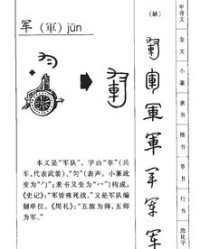 军（軍）jūn
本义是“军队”。字由“車”（兵
车，代表武装）、“勻”（表声。小篆讹
变为“勹”；隶书又变为“冖”）构成。
《史记》：“军皆殊死战。”又是军队编
制单位。《周礼》：“五旅为师，五师
为军。”
（缺）
軍
軍
軍
军
甲骨文
金文
小篆
隶书
楷书
草书
行书
简化字